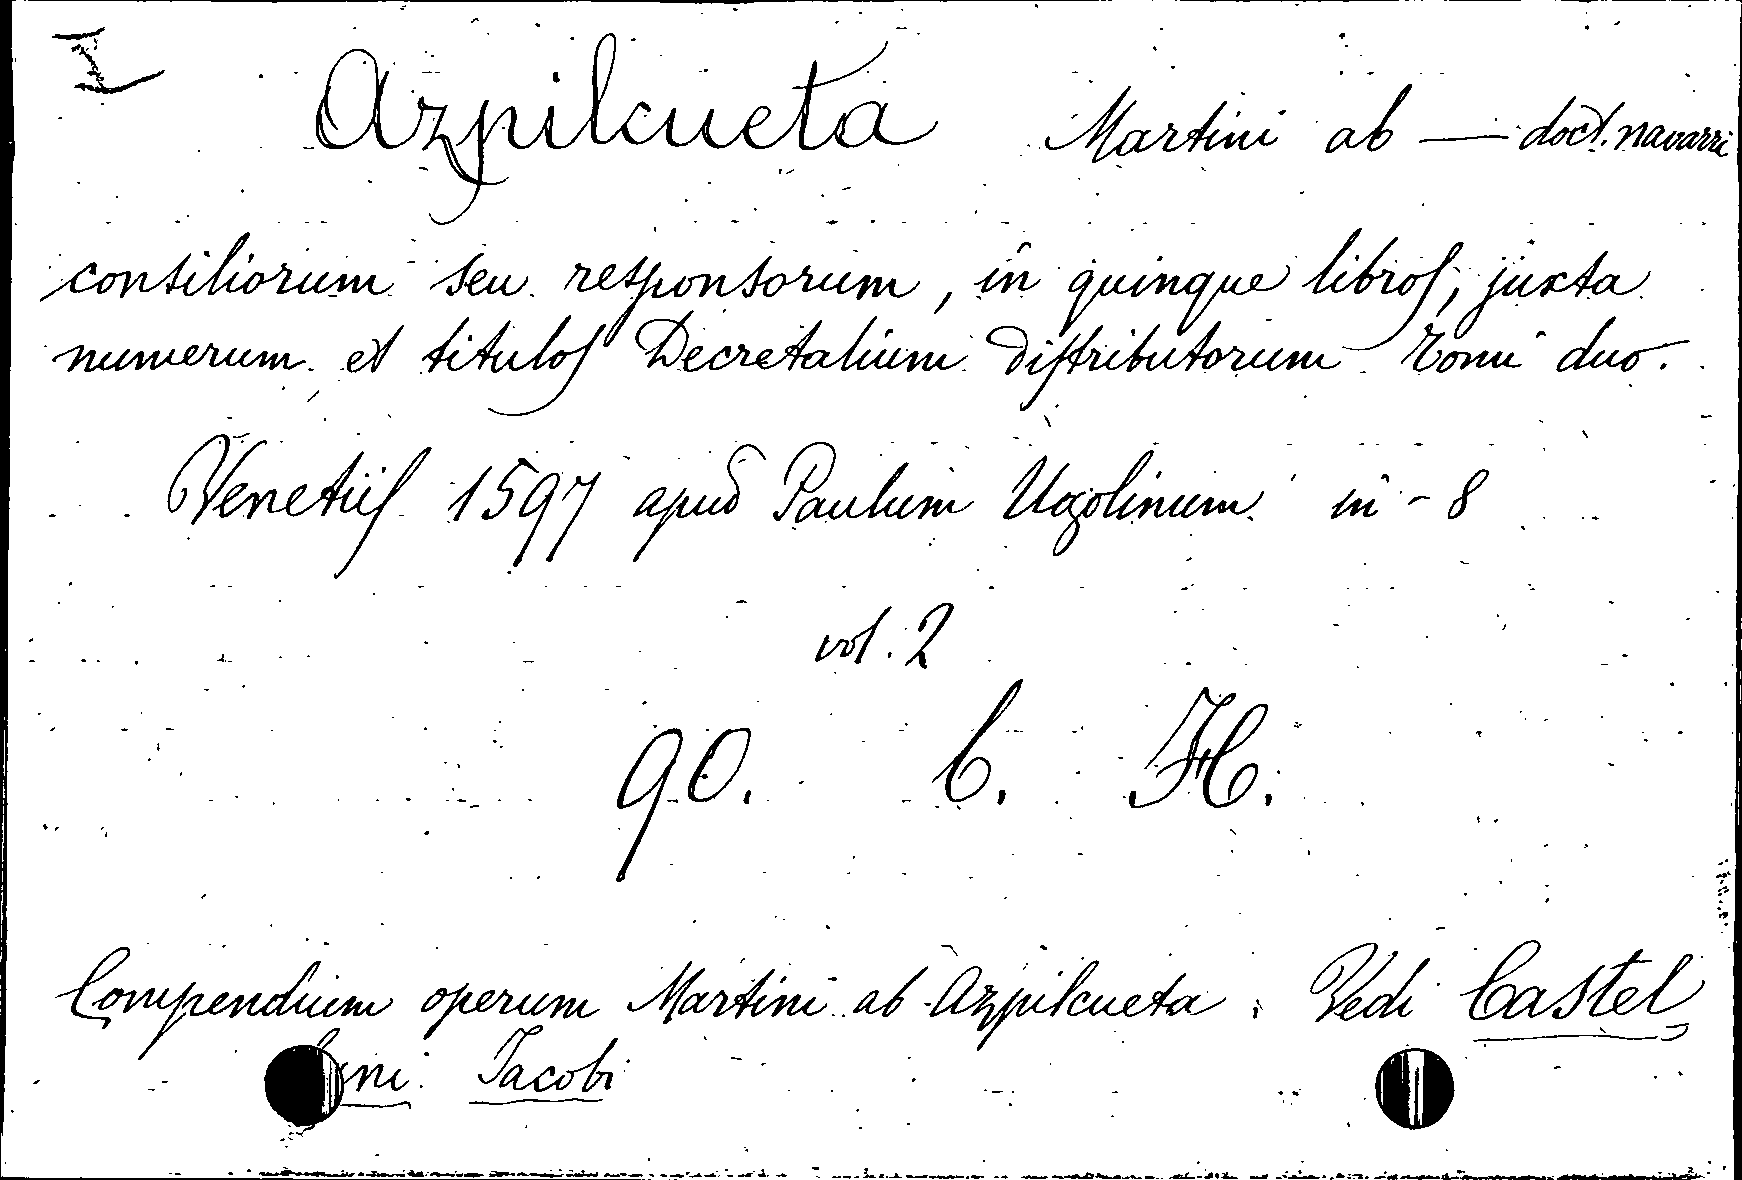 I
Azpilcueta Martini ab — doct. navarri
consiliorum seu responsorum, in quinque libros, juxta
numerum et titulos Decretalium distributorum Tomi duo.
Venetiis 1597 apud Paulum Ugolinum in-8
vol. 2
90. C. H.
Compendium operum Martini ab Azpilcueta. Vedi Castel
ni Jacobi